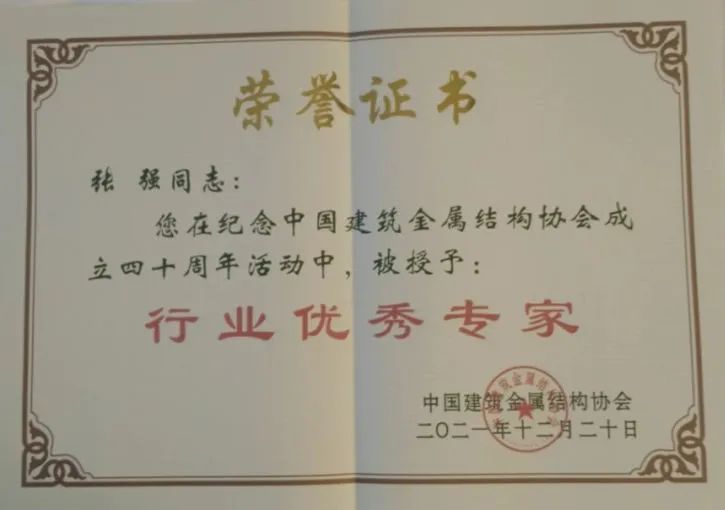 荣誉证书
张 强同志：
您在纪念中国建筑金属结构协会成
立四十周年活动中，被授予：
行业优秀专家
中国建筑金属结构协会
二〇二一年十二月二十日